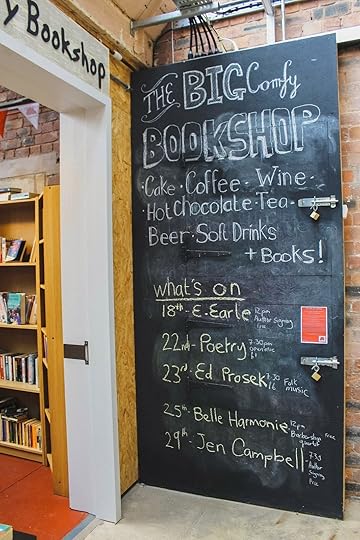 y Bookshop
THE BIG Comfy
BOOKSHOP
Cake · Coffee · Wine ·
Hot Chocolate · Tea ·
Beer · Soft Drinks
+ Books!
what's on
18th - E. Earle 12pm Author Signing Free
22nd - Poetry 7:30pm open mic
23rd - Ed Prosek 7:30 Folk music
25th - Belle Harmonie 12pm Barbershop Free quartet
29th - Jen Campbell Author Signing Free